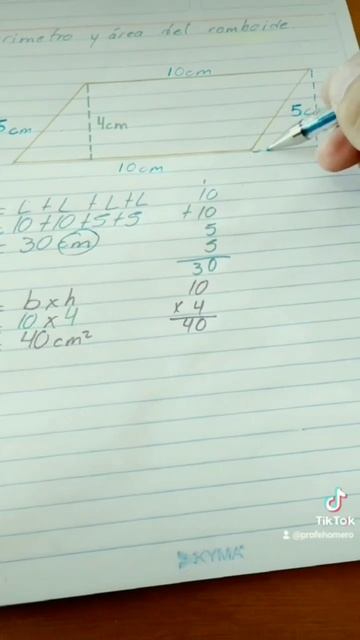 rimetro y área del romboide
10cm
5cm
4cm
5c
10cm
= L + L + L + L
= 10 + 10 + 5 + 5
= 30 cm
10
+ 10
5
5
30
= b x h
= 10 x 4
= 40 cm²
10
x 4
40
TikTok
@profehomero
KYMA